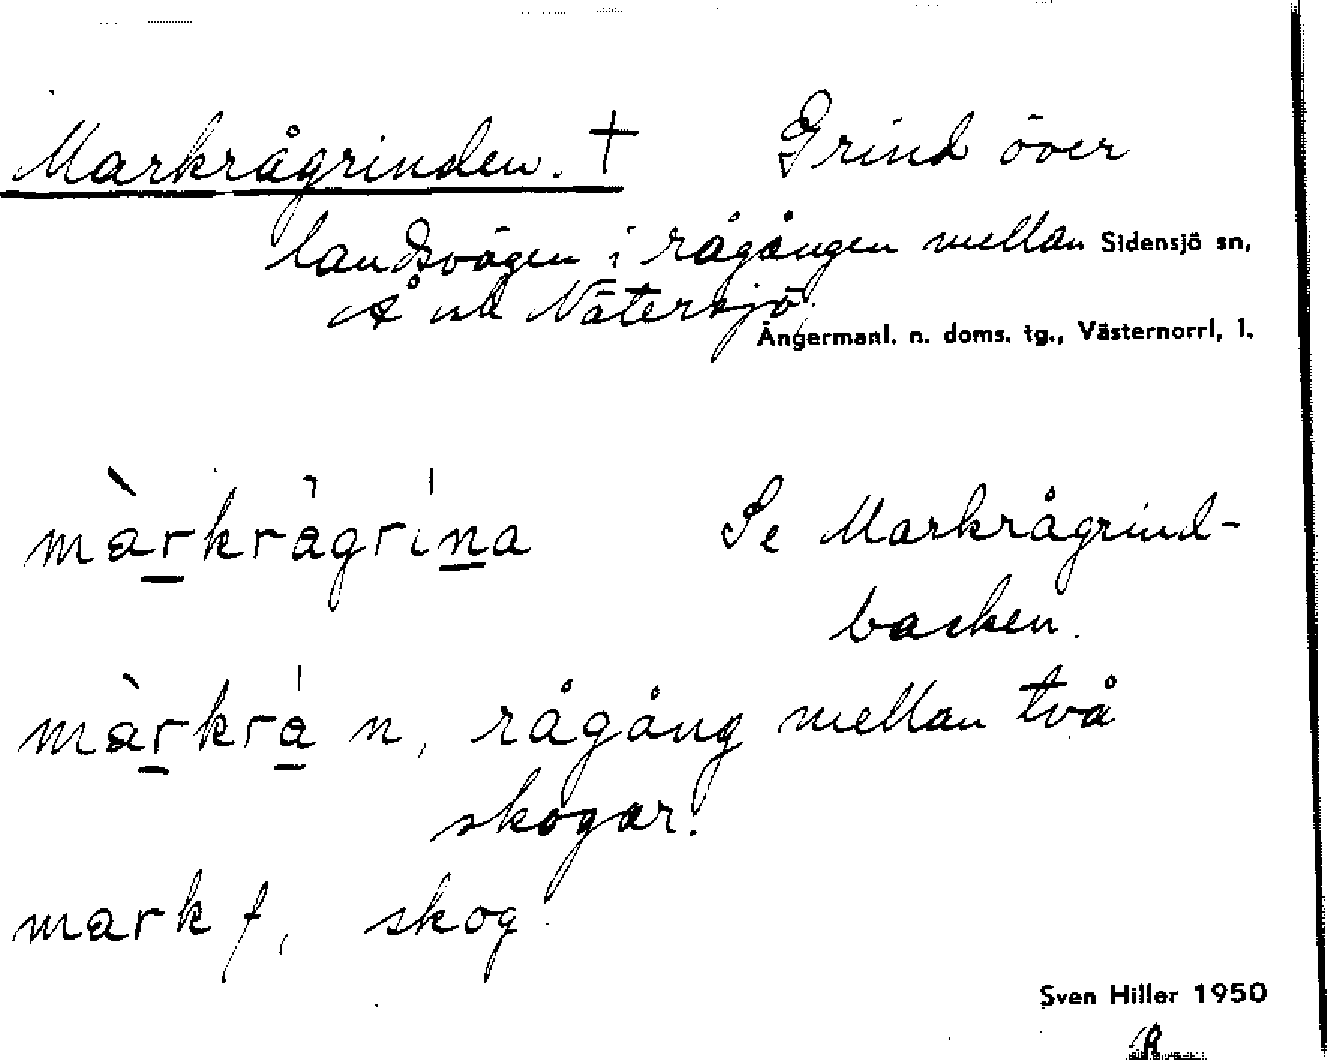 Markrågrinden. † Grind över
landsvägen i rågången mellan Sidensjö sn,
Å och Nätersjö.
Ångermanl. n. doms. tg., Västernorrl, l.
màrkràgrína Se Markrågrind-
backen.
màrkrá n, rågång mellan två
skogar.
mark f, skog.
Sven Hiller 1950